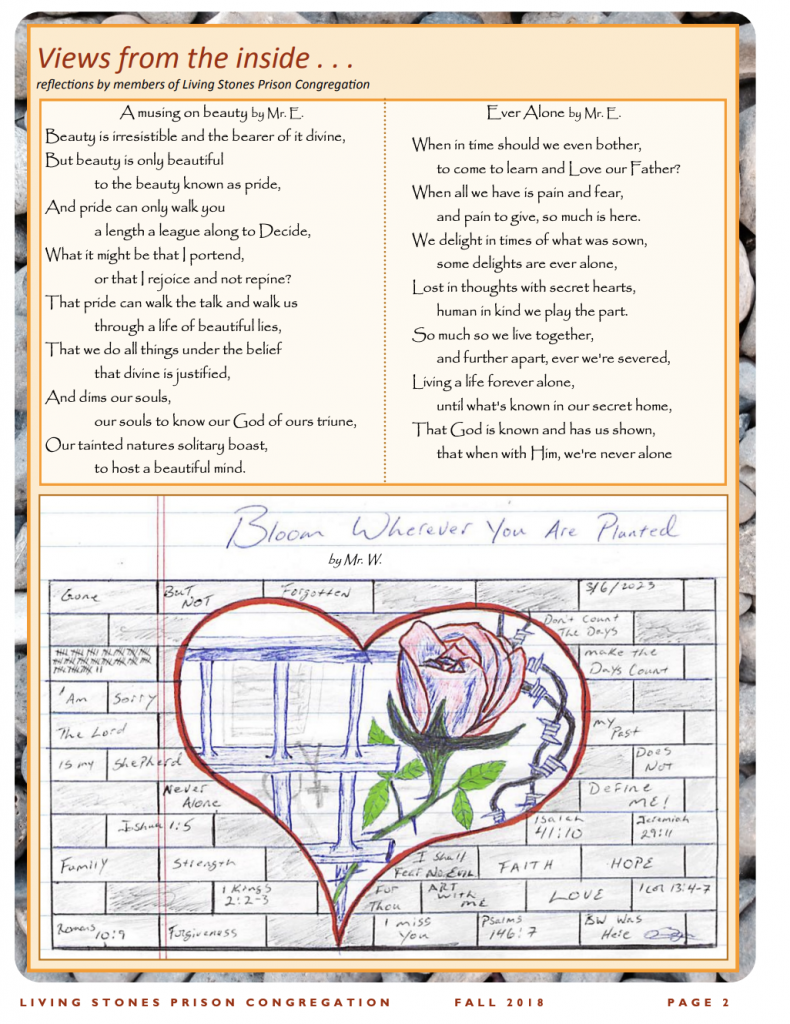 Views from the inside . . .
reflections by members of Living Stones Prison Congregation
A musing on beauty by Mr. E.
Beauty is irresistible and the bearer of it divine,
But beauty is only beautiful
to the beauty known as pride,
And pride can only walk you
a length a league along to Decide,
What it might be that I portend,
or that I rejoice and not repine?
That pride can walk the talk and walk us
through a life of beautiful lies,
That we do all things under the belief
that divine is justified,
And dims our souls,
our souls to know our God of ours triune,
Our tainted natures solitary boast,
to host a beautiful mind.
Ever Alone by Mr. E.
When in time should we even bother,
to come to learn and Love our Father?
When all we have is pain and fear,
and pain to give, so much is here.
We delight in times of what was sown,
some delights are ever alone,
Lost in thoughts with secret hearts,
human in kind we play the part.
So much so we live together,
and further apart, ever we're severed,
Living a life forever alone,
until what's known in our secret home,
That God is known and has us shown,
that when with Him, we're never alone
Bloom Wherever You Are Planted
by Mr. W.
Gone But NOT Forgotten 3/6/2023
Don't Count
The Days
make the
Days Count
I Am Sorry
The Lord
is my Shepherd
my
Past
Does
Not
Define
ME!
Never
Alone
Joshua 1:5
Isaiah
41:10
Jeremiah
29:11
Family Strength
I shall
Fear No Evil
FAITH HOPE
1 Kings
2:2-3
For
Thou
ART
with
ME
LOVE
1 Cor 13:4-7
Romans
10:9
Forgiveness
I miss
You
Psalms
146:7
BW Was
Here
LIVING STONES PRISON CONGREGATION FALL 2018 PAGE 2